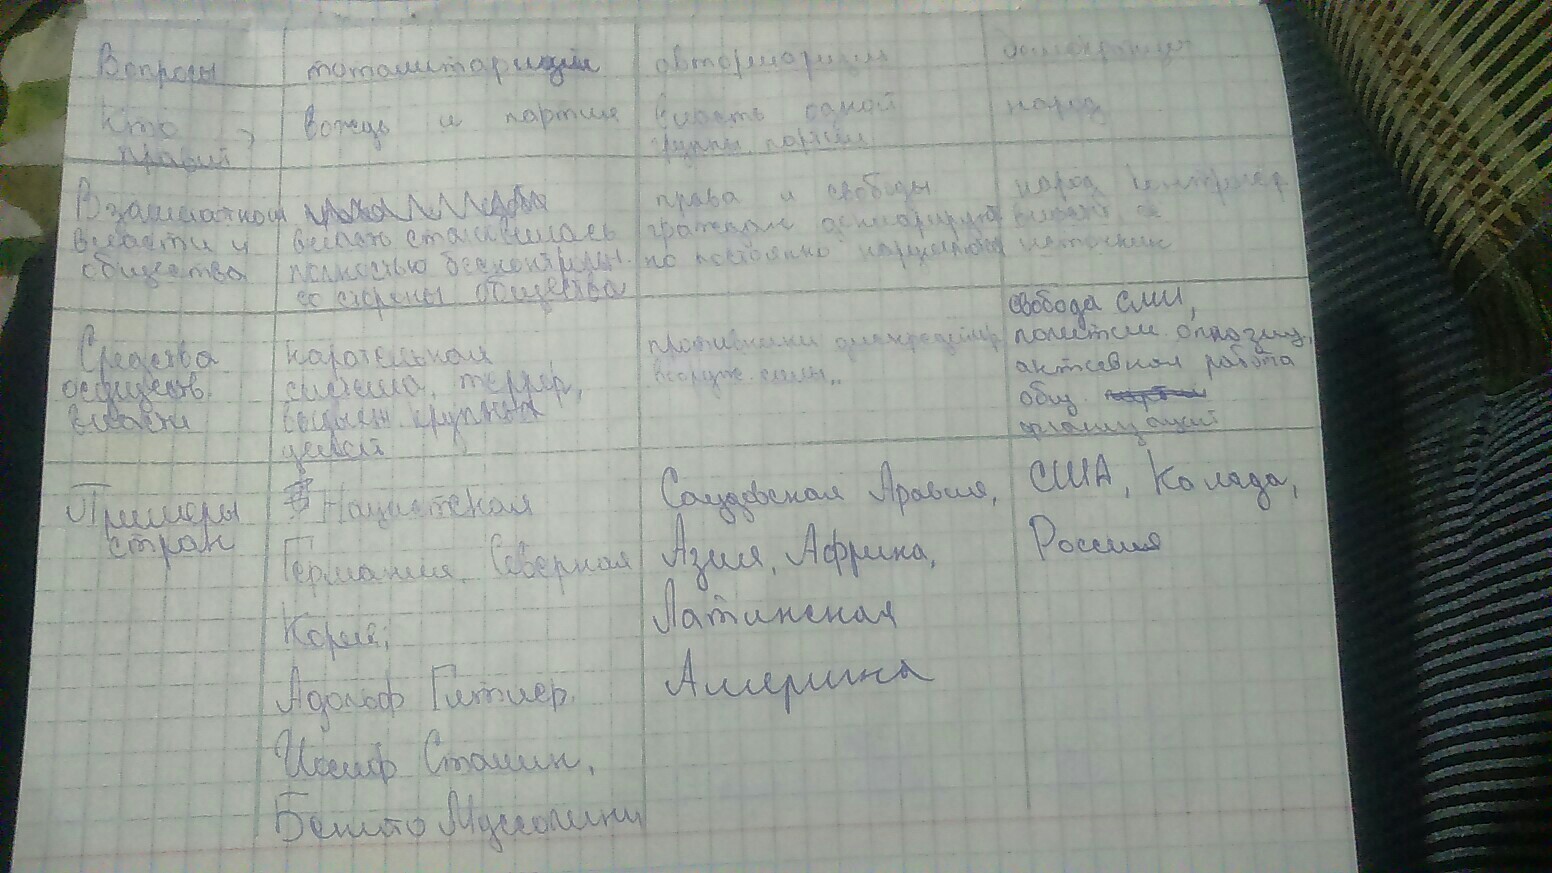 Вопросы
тоталитаризм
авторитаризм
демократия
Кто
правит
вождь и партия
власть одной
группы партии
народ
Взаимоотнош
власти и
общества
власть становилась
полностью бесконтрольн.
со стороны общества
права и свободы
граждан
но постоянно нарушаются
народ контролир.
источник
Средства
осуществ.
власти
карательная
система, террор,
крупных
целей
противники
вооруже. силы..
свобода СМИ,
политич. оппозиц,
активная работа
общ.
организаций
Примеры
стран
Нацистская
Германия, Северная
Корея,
Адольф Гитлер.
Иосиф Сталин,
Бенито Мусолини
Саудовская Аравия,
Азия, Африка,
Латинская
Америка
США, Канада,
Россия